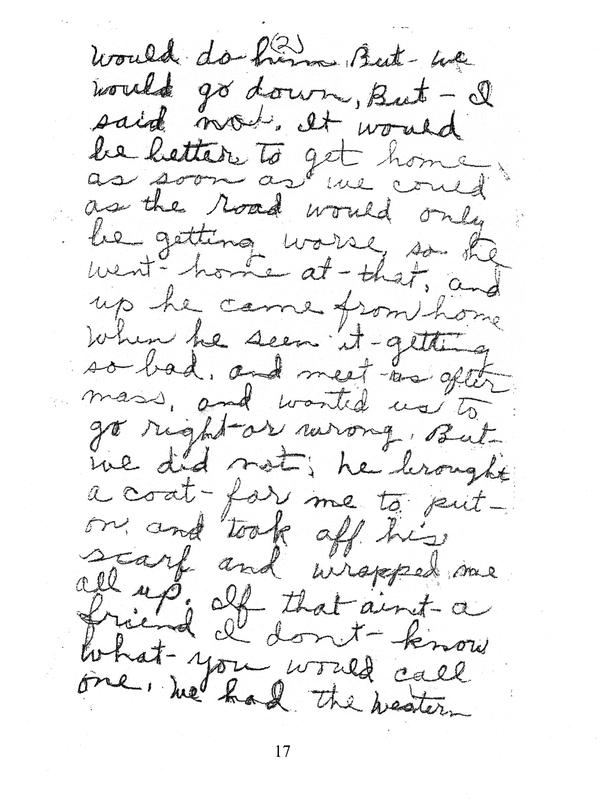 (2)
would do him, But - we
would go down, But - I
said not. It would
be better to get home
as soon as we could
as the road would only
be getting worse, so he
went - home at - that, and
up he came from home
when he seen it - getting
so bad, and meet - us after
mass, and wanted us to
go right or wrong. But -
we did not; he brought
a coat - for me to put -
on, and took off his
scarf and wrapped me
all up. If that aint - a
friend I don't - know
what - you would call
one. We had the Western
17